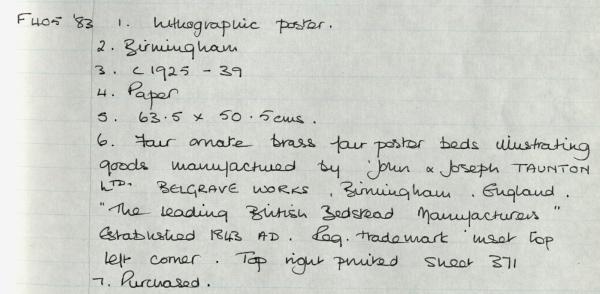 F405 '83 1. Lithographic poster.
2. Birmingham
3. C 1925 - 39
4. Paper
5. 63.5 x 50.5cms.
6. Four ornate brass four poster beds illustrating
goods manufactured by John & Joseph TAUNTON
LTD. BELGRAVE WORKS, Birmingham. England.
"The Leading British Bedstead Manufacturers"
Established 1843 AD. Reg. trademark inset top
left corner. Top right printed sheet 371
7. Purchased.